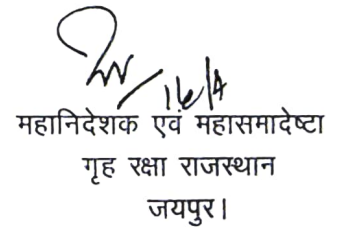 16/4
महानिदेशक एवं महासमादेष्टा
गृह रक्षा राजस्थान
जयपुर।